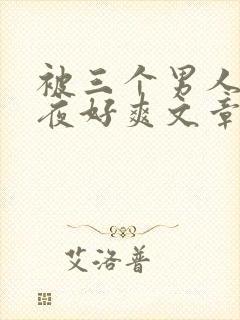 被三个男人
夜好爽文章
艾洛普